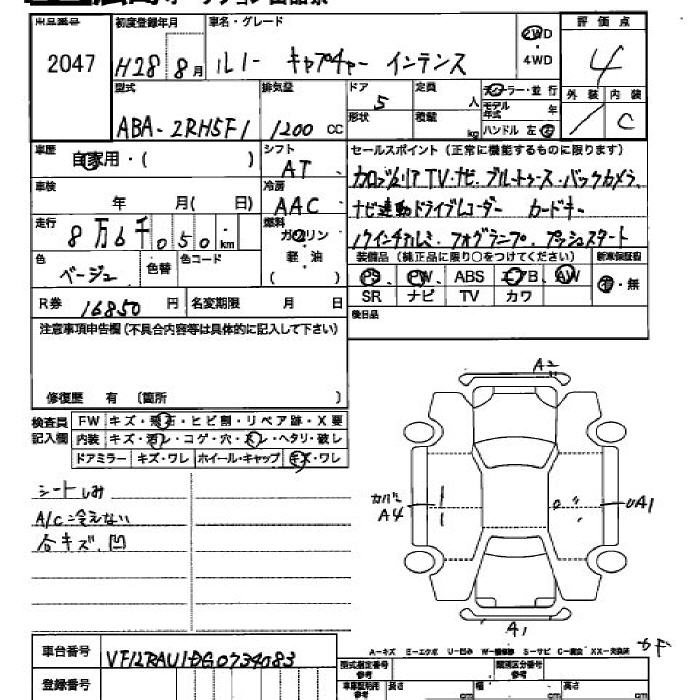 出品番号 初度登録年月 車名・グレード 2WD ・ 4WD 評価点
2047 H28 8月 ルノー キャプチャー インテンス 4
型式 排気量 ドア 定員 ディーラー・並行 外装 内装
ABA-2RH5F1 1200 cc 5 人 モデル年式 年 / C
形状 積載 kg ハンドル 左・右
車歴 自家用・( ) シフト AT セールスポイント(正常に機能するものに限ります)
車検 年 月( 日) 冷房 AAC カロッツェリア TV ナビ ブルートゥース・バックカメラ
走行 8万6千050 km 燃料 ガソリン ナビ連動ドライブレコーダー カードキー
軽・油 17インチアルミ フォグランプ プッシュスタート
色 ベージュ 色替 色コード ( ) 装備品(純正品に限り○をつけてください) 新車保証書
PS PW ABS エアB AW 有・無
R券 16850 円 名変期限 月 日 SR ナビ TV カワ
注意事項申告欄(不具合内容等は具体的に記入して下さい) 後日品
修復歴 有 (箇所
検査員記入欄 FW キズ・飛石・ヒビ割・リペア跡・X要
内装 キズ・汚レ・コゲ・穴・スレ・ヘタリ・破レ
ドアミラー キズ・ワレ ホイール・キャップ キズ・ワレ
A2
シートしみ
A/C冷えない
合キズ、凹
カバー A4
UA1
A1
A-キズ E-エクボ U-凹み W-補修跡 S-サビ C-腐食 XX-交換済
車台番号 VF12RAU1DG0734083
登録番号
型式指定番号 参考 類別区分番号 参考
長さ cm 幅 cm 高さ cm